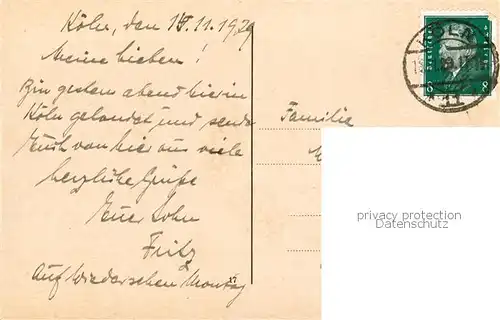 Köln, den 15.11.1929
Meine Lieben!
Bin gestern abend hier in
Köln gelandet und sende
Euch von hier aus viele
herzliche Grüße
Euer Sohn
Fritz
Auf Wiedersehen Montag
Familie
KÖLN
11
8 8
privacy protection
www.ansichtskartenversand.com